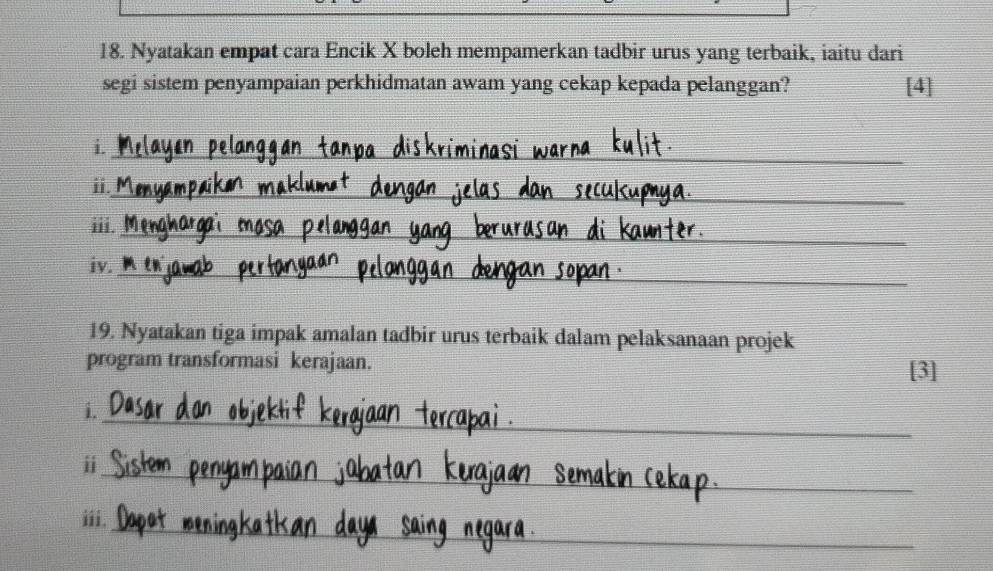 18. Nyatakan empat cara Encik X boleh mempamerkan tadbir urus yang terbaik, iaitu dari
segi sistem penyampaian perkhidmatan awam yang cekap kepada pelanggan? [4]
i. Melayan pelanggan tanpa diskriminasi warna kulit.
ii. Menyampaikan maklumat dengan jelas dan secukupnya.
iii. Menghargai masa pelanggan yang berurusan di kaunter.
iv. Menjawab pertanyaan pelanggan dengan sopan.
19. Nyatakan tiga impak amalan tadbir urus terbaik dalam pelaksanaan projek
program transformasi kerajaan. [3]
i. Dasar dan objektif kerajaan tercapai.
ii Sistem penyampaian jabatan kerajaan semakin cekap.
iii. Dapat meningkatkan daya saing negara.